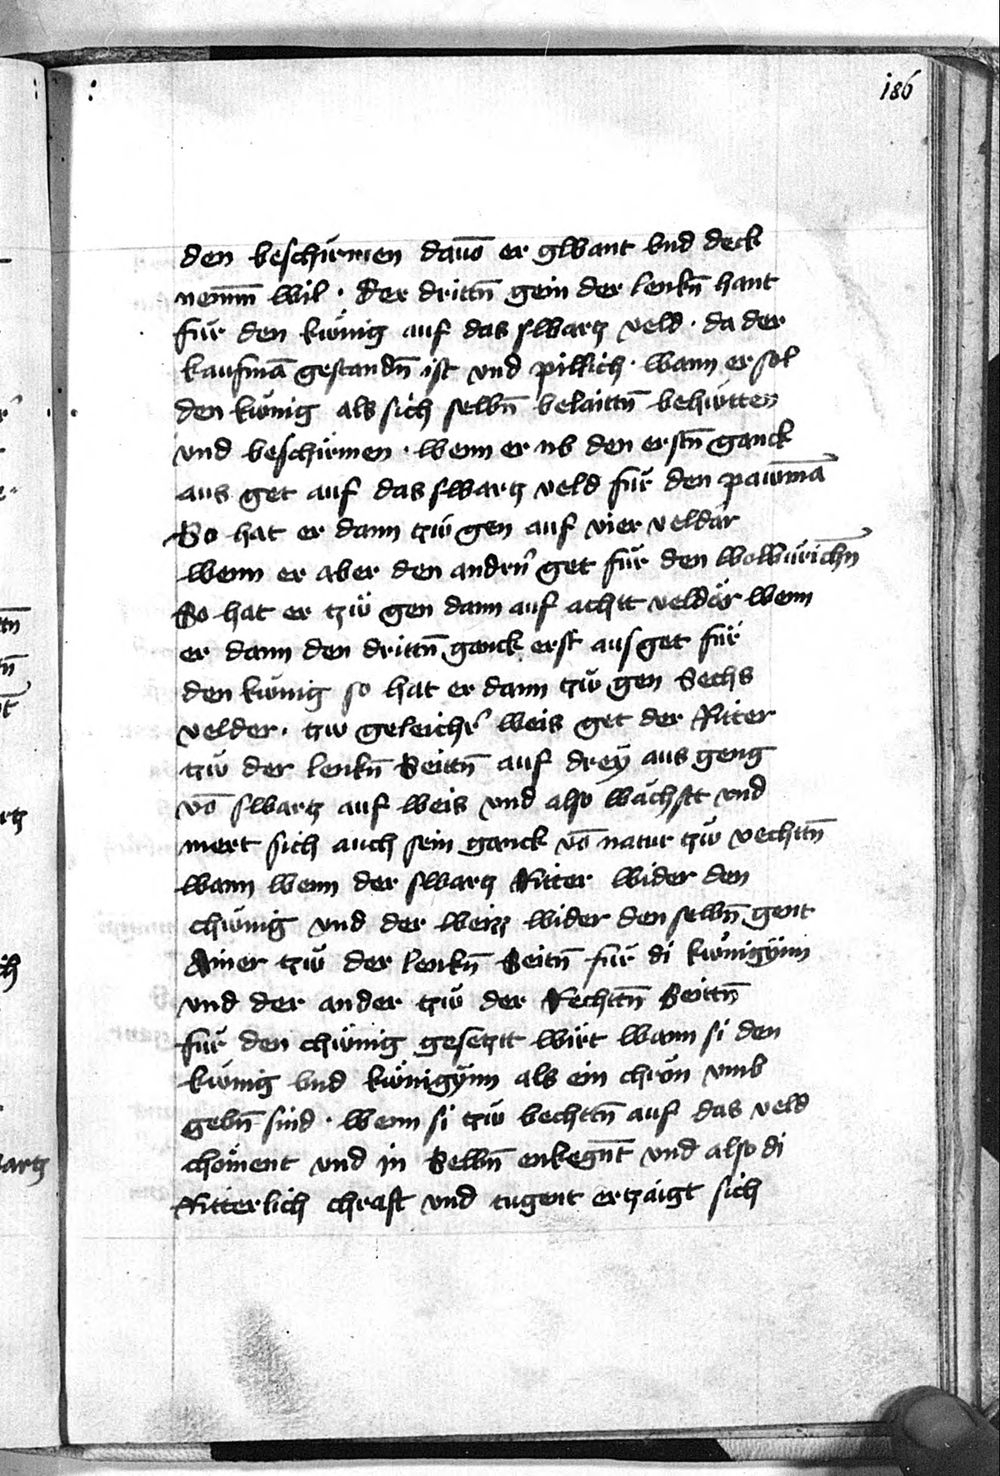 186
den beschirmen dauō er gwant vnd deck
nem̄m wil · Der drittn̄ gein der lenkn̄ hant
für den kwnig auf das swartz veld · da der
kaufmā gestandn̄ ist vnd pillich · wann er sol
den kwnig als sich selbn̄ belaittn̄ behwtten
vnd beschirmen · wenn er nb den erstn̄ ganck
aus get auf das swartz veld für den pawmā
So hat er dann tzw gen auf vier veldär
wenn er aber den andrn̄ get für den wolwürichn̄
So hat er tzw gen dann auf achtt veldär wenn
er dann den drittn̄ ganck erst aus get für
den kwnig so hat er dann tzw gen Sechs
velder · tzw geleichr̄ weis get der Ritter
tzw der lenkn̄ Seittn̄ auf dreÿ aus geng
vō swartz auf weis vnd also wächstt vnd
mert sich auch sein ganck vō natur tzw vechttn̄
wann wenn der swartz Ritter wider den
chwnig vnd der weizz wider den selbn̄ gent
Ainer tzw der lenkn̄ Seitn̄ für di kwnigÿnn
vnd der ander tzw der Rechttn̄ Seittn̄
für den chwnig gesetztt wirt wann si den
kwnig vnd kwnigÿnn als ein chron vmb
gebn̄ sind · wenn si tzw vechttn̄ auf das veld
chöment vnd in Selbn̄ enkegn̄t vnd also di
Ritterlich chraft vnd tugent ertzaigt sich